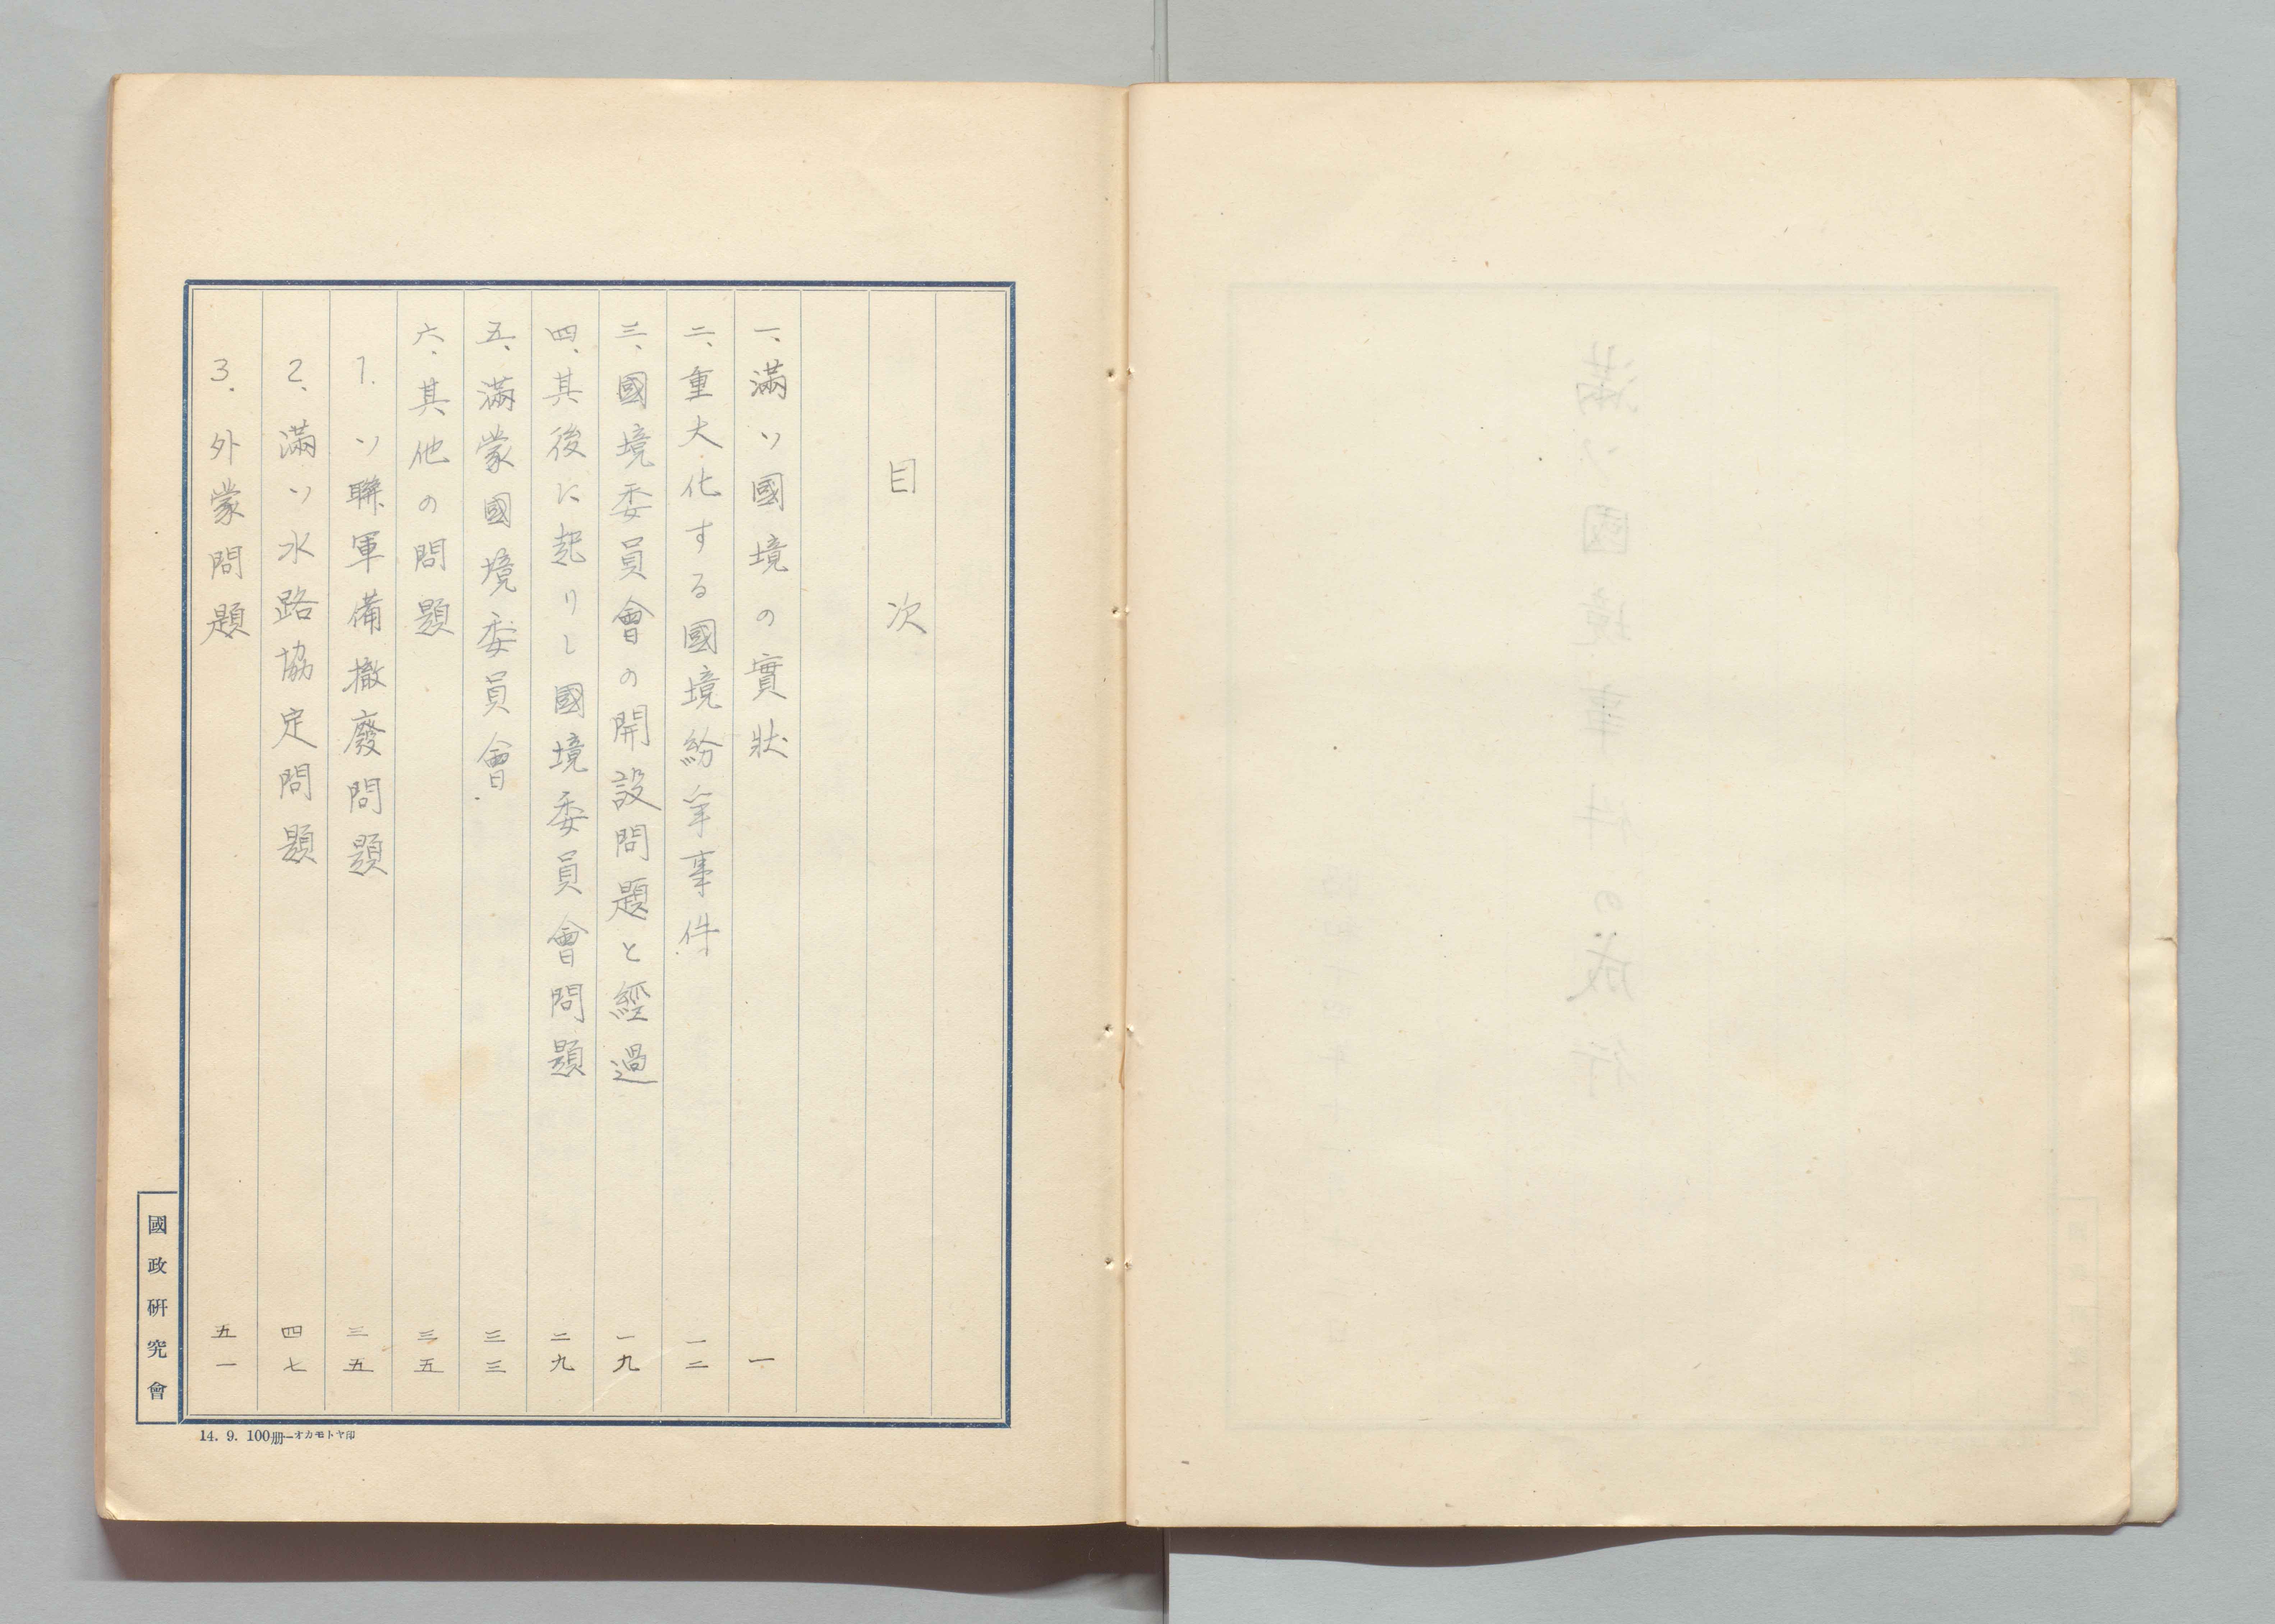 目次
一、滿ソ國境の實狀 一
二、重大化する國境紛爭事件 一二
三、國境委員會の開設問題と經過 一九
四、其後に起りし國境委員會問題 二九
五、滿蒙國境委員會 三三
六、其他の問題 三五
1. ソ聯軍備撤廢問題 三五
2、滿ソ水路協定問題 四七
3. 外蒙問題 五一
國政硏究會
14. 9. 100册—オカモトヤ印
滿ソ國境事件の成行